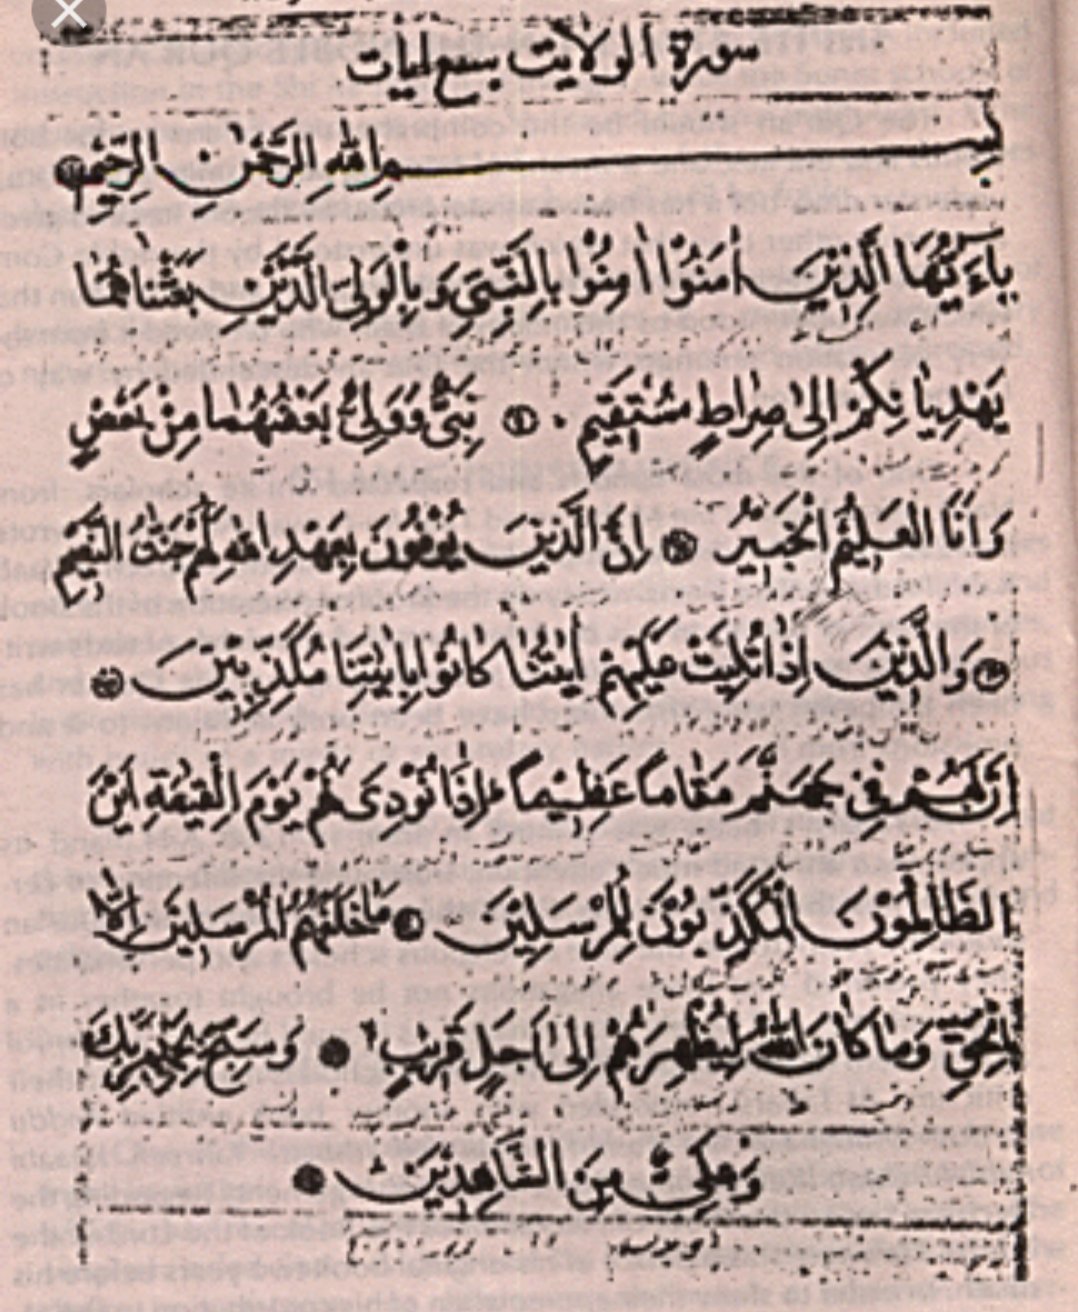 سورة الولايت سبع ايات
بِسْمِ اللهِ الرَّحْمٰنِ الرَّحِيْمِ
يٰاَءَيُّهَا الَّذِيْنَ اٰمَنُوْا اٰمِنُوْا بِالنَّبِيِّ وَبِالْوَلِيِّ الَّذَيْنِ بَعَثْنَاهُمَا
يَهْدِيَانِكُمْ اِلىٰ صِرَاطٍ مُسْتَقِيْمٍ ۱ نَبِيٌّ وَوَلِيٌّ بَعْضُهُمَا مِنْ بَعْضٍ
وَاَنَا الْعَلِيْمُ الْخَبِيْرُ اِنَّ الَّذِيْنَ يُوْفُوْنَ بِعَهْدِ اللهِ لَهُمْ جَنّٰتُ النَّعِيْمِ
وَالَّذِيْنَ اِذَا تُلِيَتْ عَلَيْهِمْ اٰيٰتُنَا كَانُوْا بِاٰيٰتِنَا مُكَذِّبِيْنَ
اِنَّ لَهُمْ فِيْ جَهَنَّمَ مَقَامًا عَظِيْمًا اِذَا نُوْدِىَ لَهُمْ يَوْمَ الْقِيٰمَةِ اَيْنَ
الظَّالِمُوْنَ الْمُكَذِّبُوْنَ لِلْمُرْسَلِيْنَ مَا خَلَفَهُمُ الْمُرْسَلِيْنَ اِلَّا
بِالْحَقِّ وَمَا كَانَ اللهُ لِيُظْهِرَهُمْ اِلىٰ اَجَلٍ قَرِيْبٍ وَسَبِّحْ بِحَمْدِ رَبِّكَ
وَعَلِيٌّ مِنَ الشَّاهِدِيْنَ